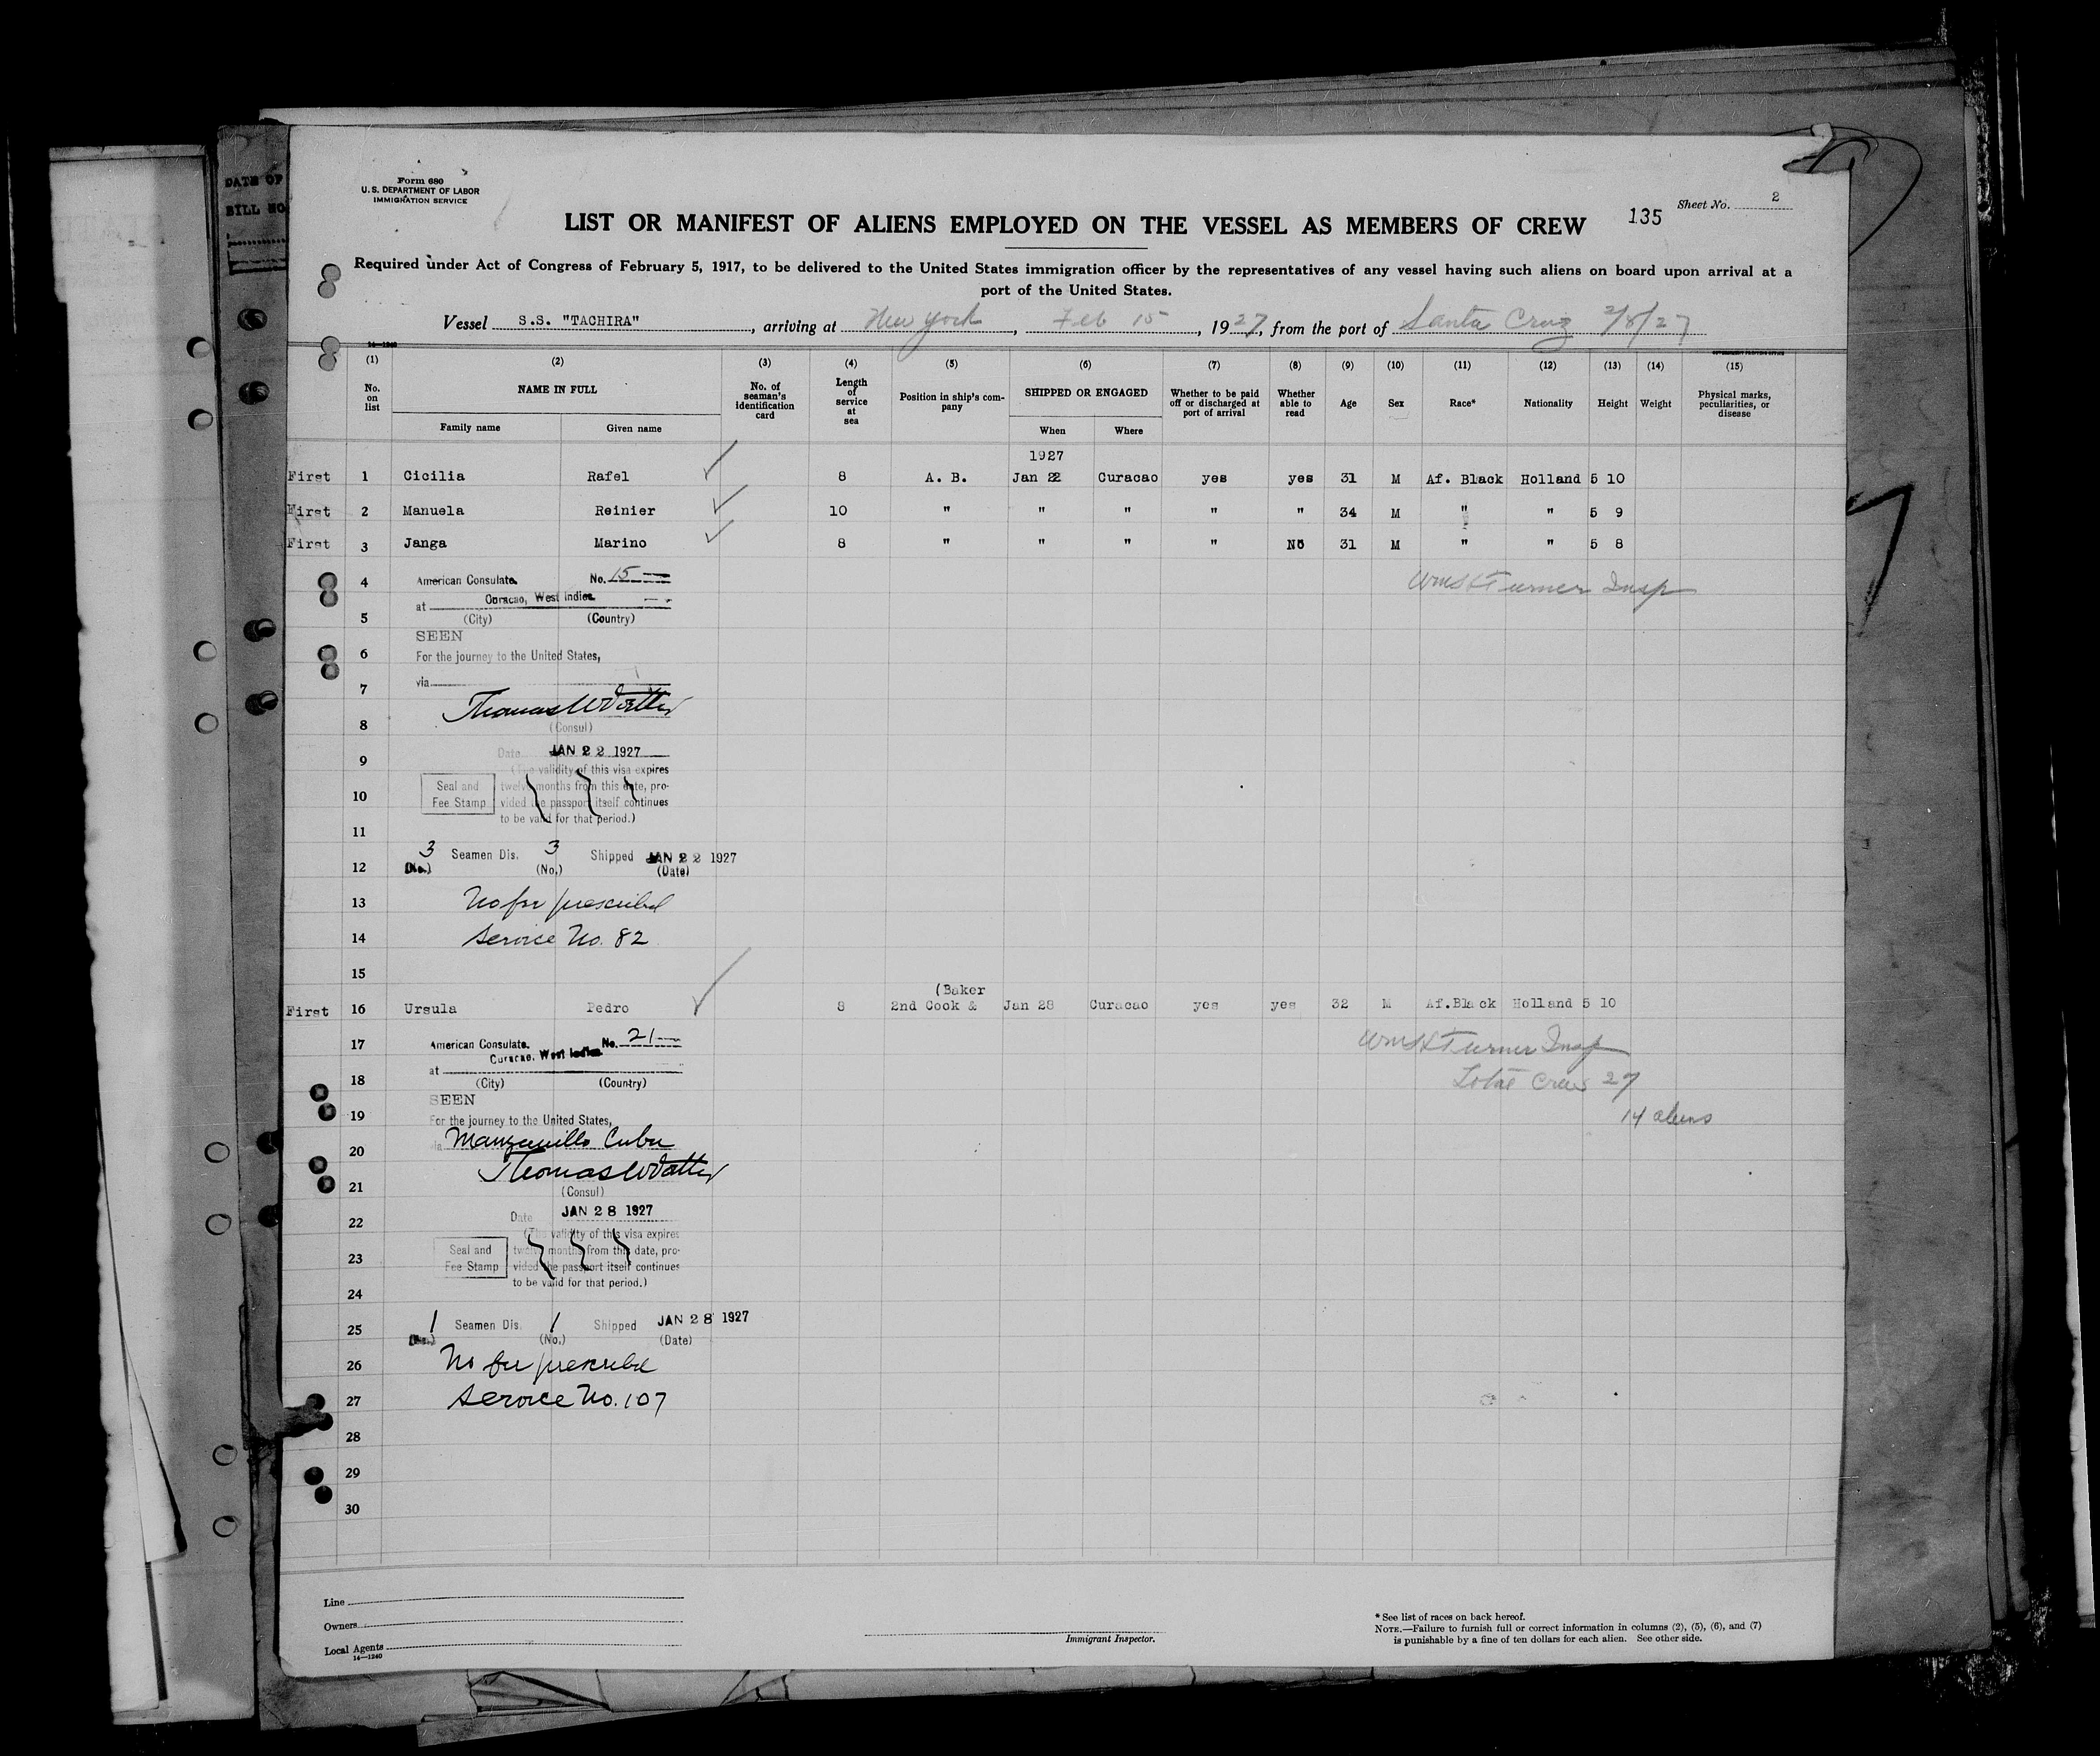 DATE OF
BILL NO
Form 680
U.S. DEPARTMENT OF LABOR
IMMIGRATION SERVICE
Sheet No. 2
LIST OR MANIFEST OF ALIENS EMPLOYED ON THE VESSEL AS MEMBERS OF CREW 135
Required under Act of Congress of February 5, 1917, to be delivered to the United States immigration officer by the representatives of any vessel having such aliens on board upon arrival at a
port of the United States.
Vessel S.S. "TACHIRA", arriving at New York, Feb 15, 1927, from the port of Santa Cruz 2/8/27
14—1240
(1) (2) (3) (4) (5) (6) (7) (8) (9) (10) (11) (12) (13) (14) (15)
No. on list NAME IN FULL No. of seaman's identification card Length of service at sea Position in ship's company SHIPPED OR ENGAGED Whether to be paid off or discharged at port of arrival Whether able to read Age Sex Race* Nationality Height Weight Physical marks, peculiarities, or disease
Family name Given name When Where
1927
First 1 Cicilia Rafel 8 A. B. Jan 22 Curacao yes yes 31 M Af. Black Holland 5 10
First 2 Manuela Reinier 10 " " " " " 34 M " " 5 9
First 3 Janga Marino 8 " " " " No 31 M " " 5 8
4 American Consulate. No. 15 Wm H Turner Insp
at Curacao, West Indies.
5 (City) (Country)
SEEN
6 For the journey to the United States,
7 via
Thomas W Voetter
8 (Consul)
9 Date JAN 22 1927
(The validity of this visa expires
10 Seal and Fee Stamp twelve months from this date, pro-
vided the passport itself continues
to be valid for that period.)
11
3 Seamen Dis. 3 Shipped JAN 22 1927
12 (No.) (No.) (Date)
13 No fee prescribed
14 Service No. 82
15
(Baker
First 16 Ursula Pedro 8 2nd Cook & Jan 28 Curacao yes yes 32 M Af.Black Holland 5 10
17 American Consulate. No. 21 Wm H Turner Insp
Curacao, West Indies.
at
18 (City) (Country) Total Crew 27
SEEN
19 For the journey to the United States, 14 aliens
20 via Manzanillo Cuba
Thomas W Voetter
21 (Consul)
22 Date JAN 28 1927
(The validity of this visa expires
23 Seal and Fee Stamp twelve months from this date, pro-
vided the passport itself continues
to be valid for that period.)
24
25 1 Seamen Dis. 1 Shipped JAN 28 1927
(No.) (No.) (Date)
26 No fee prescribed
27 Service No. 107
28
29
30
Line
Owners
Local Agents
14—1240
Immigrant Inspector.
* See list of races on back hereof.
NOTE.—Failure to furnish full or correct information in columns (2), (5), (6), and (7)
is punishable by a fine of ten dollars for each alien. See other side.